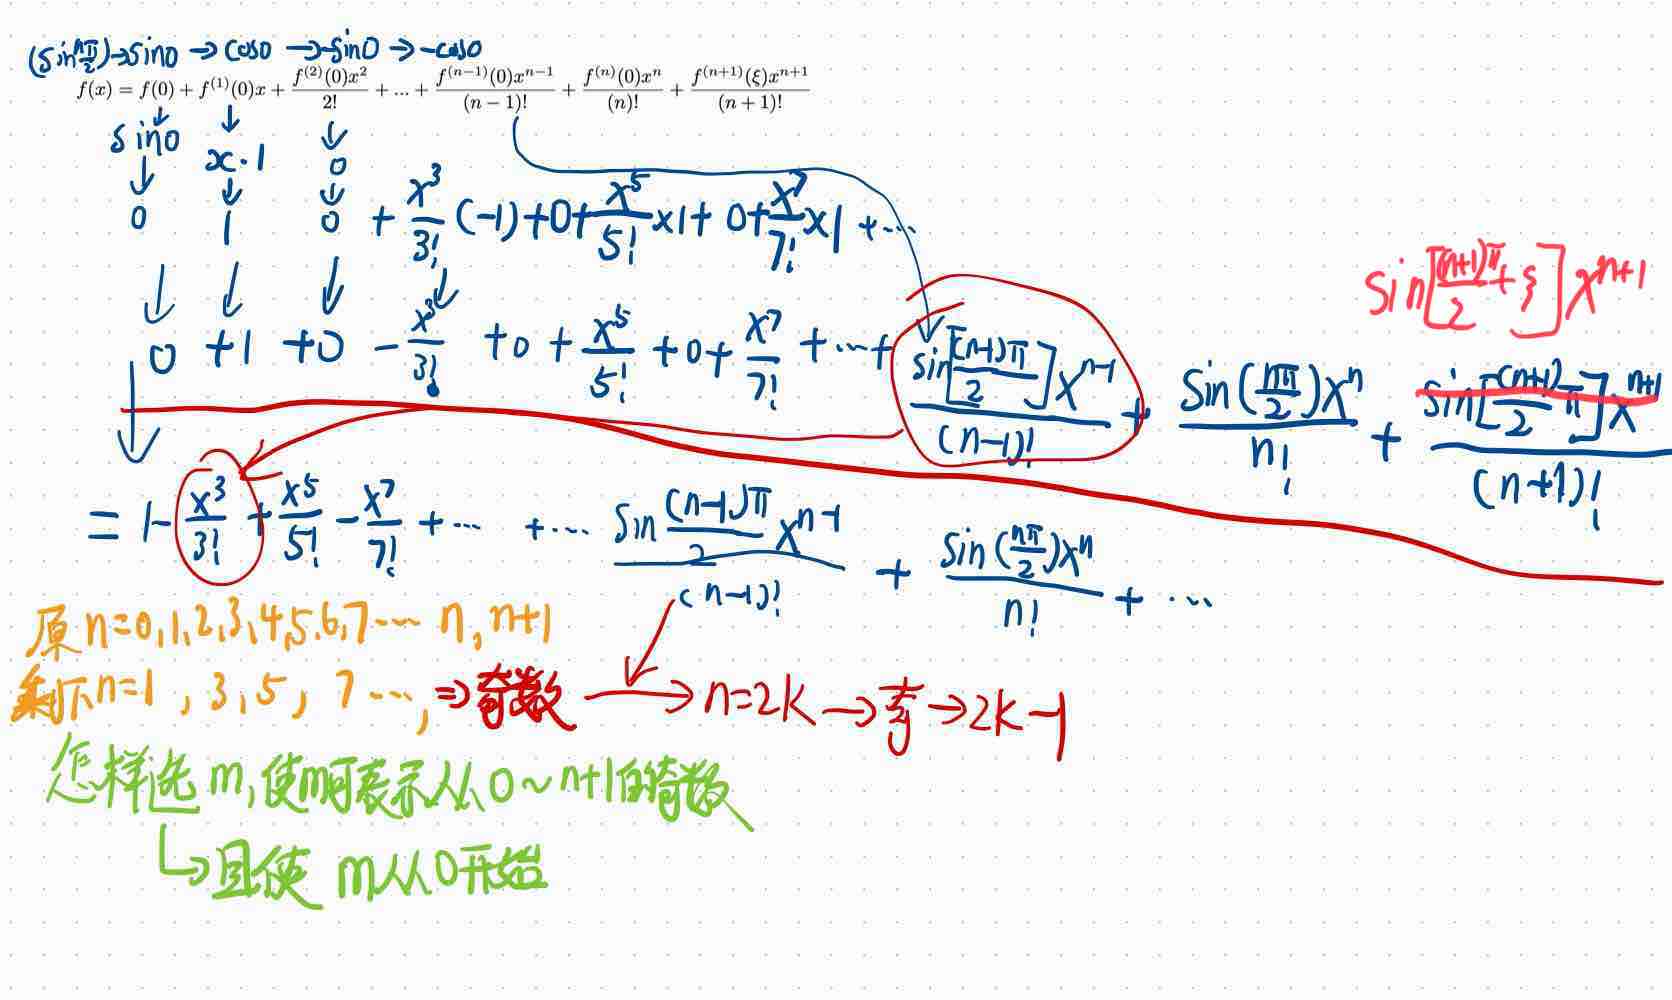 (sin nπ/2)→sin0 →cos0 →-sin0 →-cos0
f(x) = f(0) + f^{(1)}(0)x + \frac{f^{(2)}(0)x^2}{2!} + ... + \frac{f^{(n-1)}(0)x^{n-1}}{(n-1)!} + \frac{f^{(n)}(0)x^n}{(n)!} + \frac{f^{(n+1)}(ξ)x^{n+1}}{(n+1)!}
sin0 x·1 0
0 1 0 + \frac{x^3}{3!}(-1)+0+\frac{x^5}{5!}×1+ 0+\frac{x^7}{7!}×1 +...
sin[\frac{(n+1)π}{2}+ξ]x^{n+1}
0 +1 +0 - \frac{x^3}{3!} +0 + \frac{x^5}{5!} +0+ \frac{x^7}{7!} +...+ \frac{sin[\frac{(n-1)π}{2}]x^{n-1}}{(n-1)!} + \frac{sin(\frac{nπ}{2})x^n}{n!} + \frac{sin[\frac{(n+1)}{2}π]x^{n+1}}{(n+1)!}
= 1- \frac{x^3}{3!} + \frac{x^5}{5!} - \frac{x^7}{7!} +... +... \frac{sin\frac{(n-1)π}{2}x^{n-1}}{(n-1)!} + \frac{sin(\frac{nπ}{2})x^n}{n!} + ...
原n=0,1,2,3,4,5,6,7... n,n+1
剩下n=1,3,5,7...,⇒奇数 → n=2k→奇→2k-1
怎样选m,使m可表示从0~n+1的奇数
↳且使 m从0开始